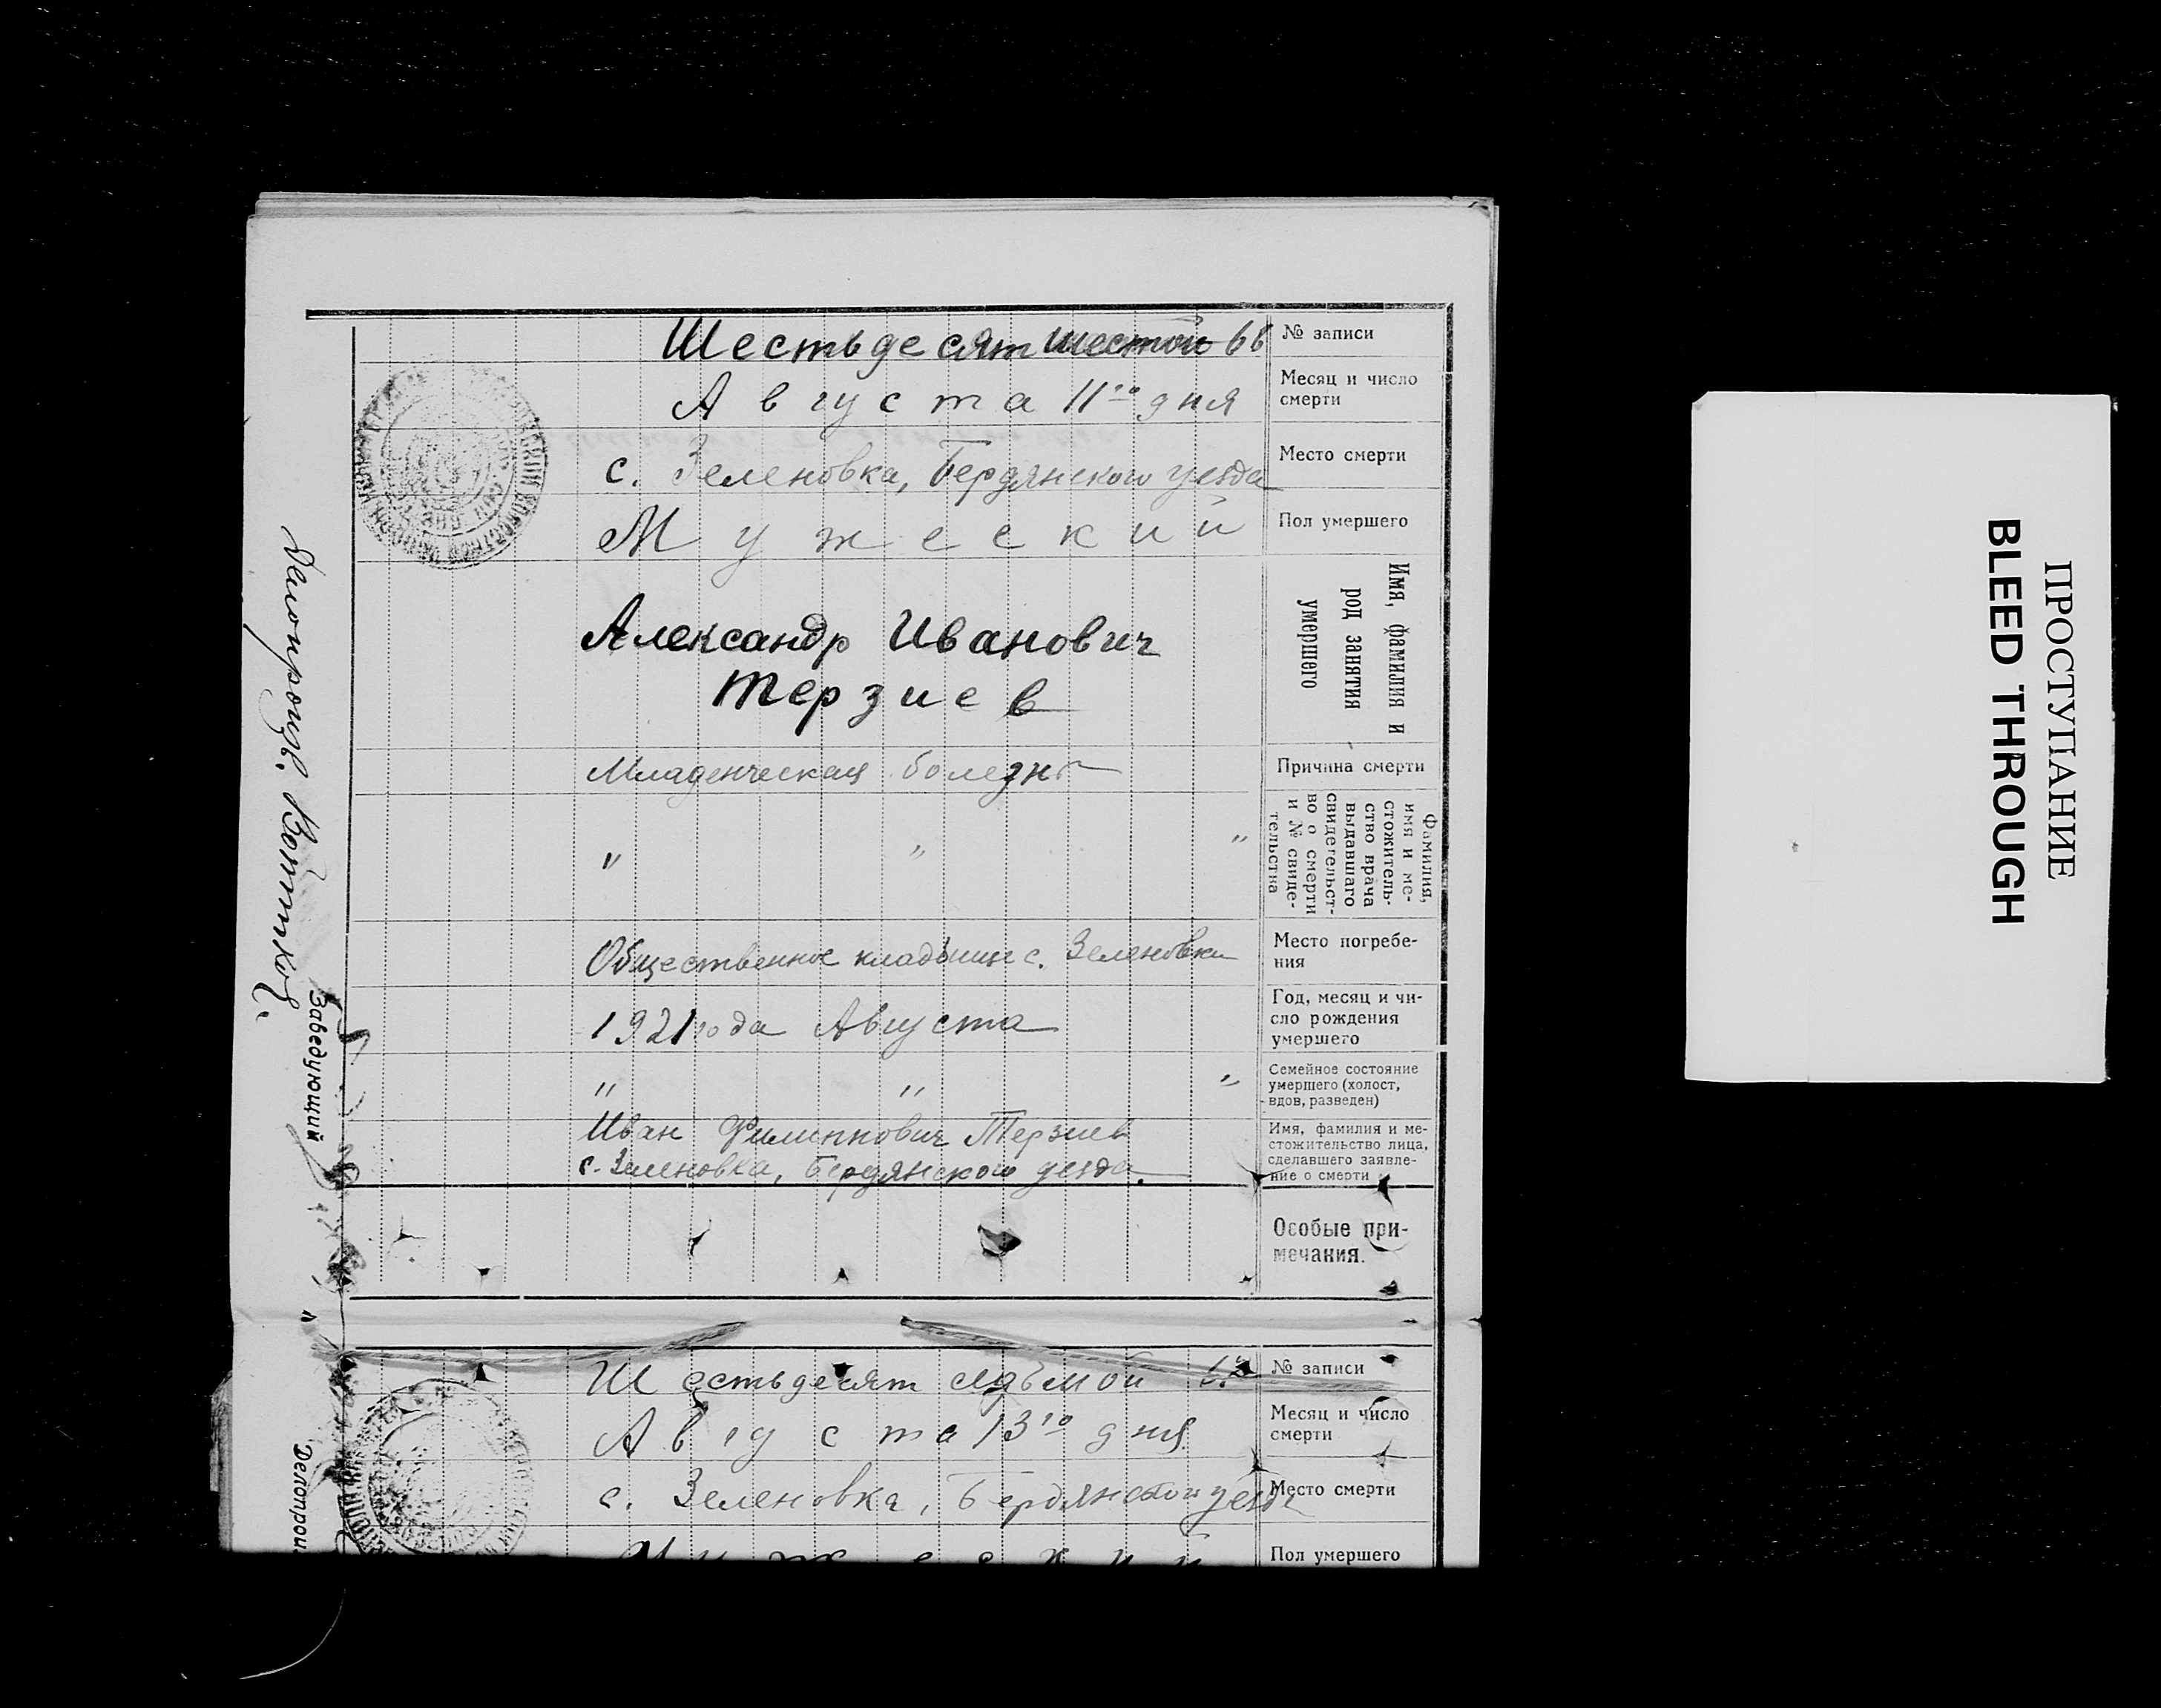 Шестьдесят шестой 66
№ записи
Августа 11го дня
Месяц и число
смерти
с. Зеленовка, Бердянского уезда
Место смерти
Мужеский
Пол умершего
Александр Иванович
Терзиев
Имя, фамилия и
род занятия
умершего
Младенческая болезнь
Причина смерти
" " "
Фамилия,
имя и ме-
стожитель-
ство врача
выдавшаго
свидетельст-
во о смерти
и № свиде-
тельства
Общественное кладбище с. Зеленовки
Место погребе-
ния
1921 года Августа
Год, месяц и чи-
сло рождения
умершего
" " "
Семейное состояние
умершего (холост,
вдов, разведен)
Иван Филиппович Терзиев
с. Зеленовка, Бердянского уезда.
Имя, фамилия и ме-
стожительство лица,
сделавшего заявле-
ние о смерти
Особые при-
мечания.
Заведующий
Делопроизв.
Шестьдесят седьмой
№ записи
Августа 13го дня
Месяц и число
смерти
с. Зеленовка, Бердянского уезда
Место смерти
Мужеский
Пол умершего
ПРОСТУПАНИЕ
BLEED THROUGH